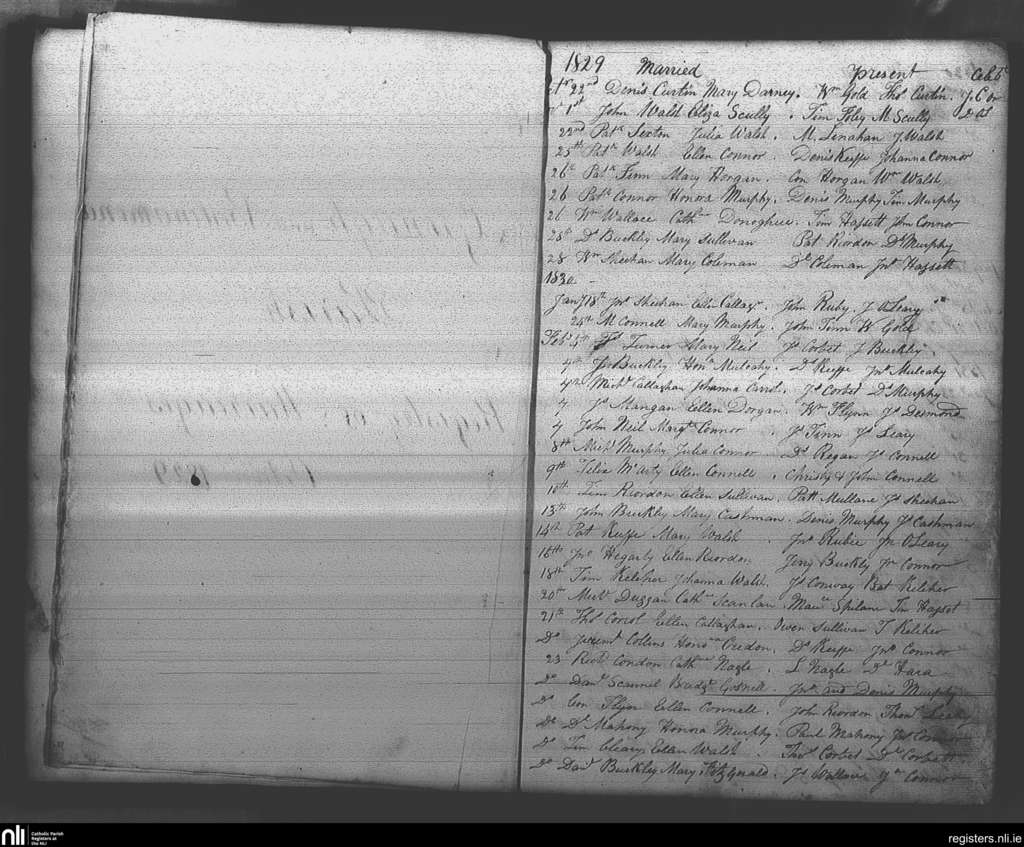 1829 Married present Celebt
22nd Denis Curtin Mary Darney. Wm Gold Thos Curtin.
1st John Walsh Eliza Scully. Tim Foley M Scully
22nd Patk Sexton Julia Walsh. M. Linahan J Walsh
25th Patk Walsh Ellen Connor. Denis Keeffe Johanna Connor
26th Patk Finn Mary Horgan. Con Horgan Wm Walsh
26 Patk Connor Honora Murphy. Denis Murphy Tim Murphy
26 Wm Wallace Cathne Donoghue. Tim Hassett John Connor
28th Dl Buckley Mary Sullivan Pat Riordon Dl Murphy
28 Wm Sheehan Mary Coleman Dl Coleman Jno Hassett
1830
Jany 18th Jno Sheehan Ellen Callagn. John Ruby J OLeary
24th M Connell Mary Murphy. John Finn W Gold
Feb 4th Turner Mary Neil Js Corbet J Buckley
4th Js Buckley Hona Mulcahy. Dl Keeffe Jno Mulcahy
4th Michl Callaghan Johanna Carrol. Js Corbet Dl Murphy
4 Js Mangan Ellen Dorgan. Wm Flynn Js Desmond
4 John Neil Margt Connor. Js Finn Js Leary
8th Michl Murphy Julia Connor Dl Regan Js Connell
9th Felix McCarty Ellen Connell. Christy & John Connell
10th Tim Riordon Ellen Sullivan. Patk Mullane Js Sheehan
13th John Buckley Mary Cashman. Denis Murphy Js Cashman
14th Pat Keeffe Mary Walsh. Jno Rubie Jn OLeary
16th Jno Hegarty Ellen Riordon Jerry Buckly Jn Connor
18th Tim Keleher Johanna Walsh. Js Conway Bat Keleher
20th Michl Duggan Cathne Scanlan. Maue Spilane Tim Hasset
21th Thos Corrol Ellen Callaghan. Owen Sullivan T Keleher
Do Collins Honora Dl Keeffe Jno Connor
23 Richd Condon Cathne Nagle. L Nagle Dl Hara
Do Danl Scannel Bridgt Gosnell. Jno and Denis Murphy
Do Con Flyn Ellen Connell. John Riordon Thos Leary
Do Dl Mahony Honora Murphy. Paul Mahony Jno
Do Tim Cleary Ellen Walsh Thos Corbet Dl Corbet
Do Danl Buckley Mary Fitzgerald. Js Wallace Jn Connor
nli Catholic Parish
Registers at
the NLI
registers.nli.ie